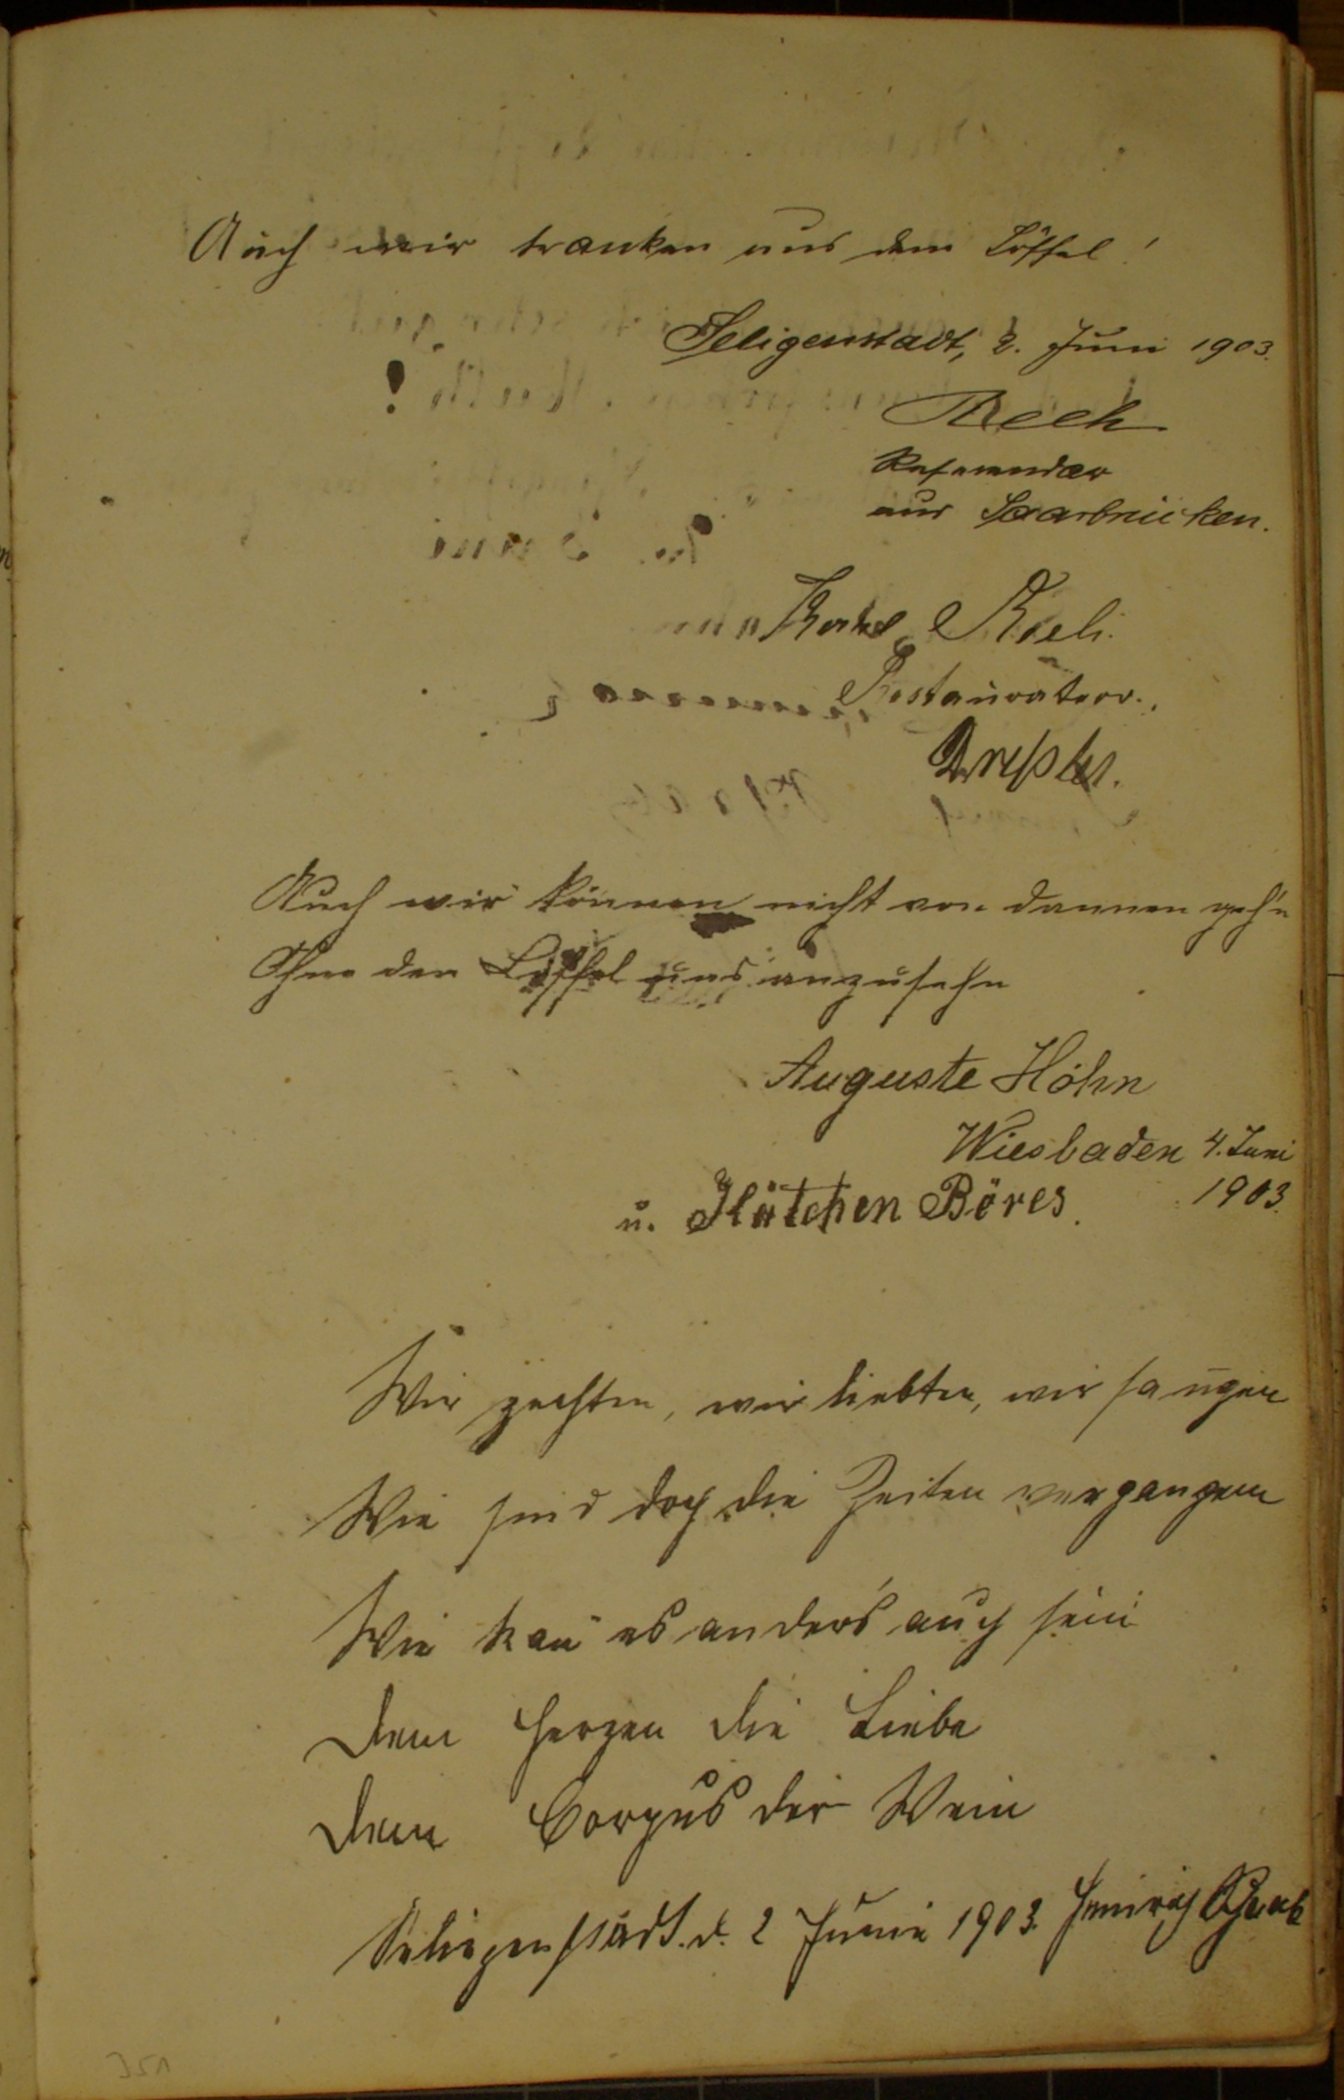 Auch wir tranken aus dem Löffel!
Seligenstadt, 2. Juni 1903.
Reeh
Referendar
aus Saarbrücken.
Restaurateur.
Auch wir können nicht von dannen geh'n
Ohne den Löffel uns anzusehn
Auguste Höhn
Wiesbaden 4. Juni
1903.
u. Kätchen Böres.
Wir zechten, wir liebten, wir sangen
Wie sind doch die Zeiten vergangen
Wie kan̄ es anders auch sein
Dem Herzen die Liebe
Dem Corpus der Wein
Seligenstadt. d. 2 Juni 1903. Heinrich
351